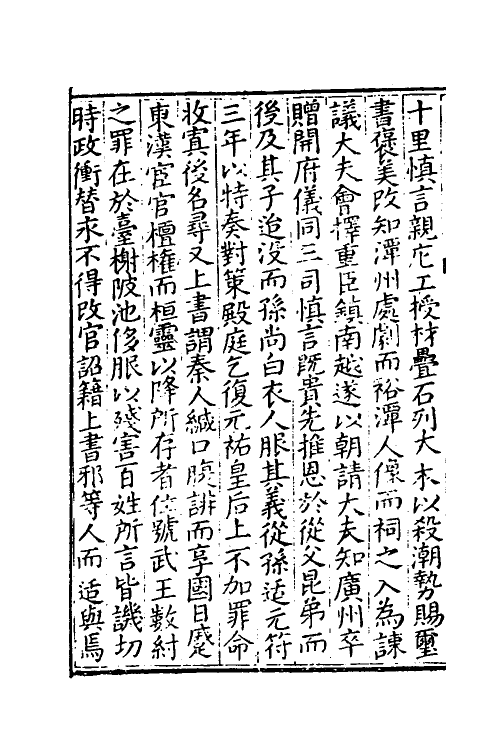 十里慎言親庀工授材疊石列大木以殺潮勢賜璽
書褒美改知潭州處劇而裕潭人像而祠之入為諫
議大夫會擇重臣鎮南越遂以朝請大夫知廣州卒
贈開府儀同三司慎言既貴先推恩於從父昆弟而
後及其子迨没而孫尚白衣人服其義從孫适元符
三年以特奏對策殿庭乞復元祐皇后上不加罪命
收寘後名尋又上書謂秦人緘口腹誹而享國日蹙
東漢宦官檀權而桓靈以降所存者位號武王數紂
之罪在於臺榭陂池侈服以殘害百姓所言皆譏切
時政衝替求不得改官詔籍上書邪等人而适與焉